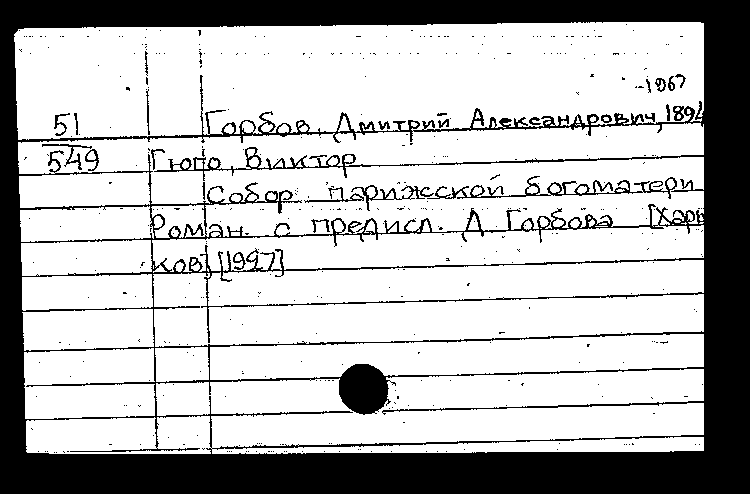 -1967
51 Горбов, Дмитрий Александрович, 1894
549 Гюго, Виктор
Собор парижской богоматери
Роман. с предисл. Д. Горбова [Харь
ков], [1927]